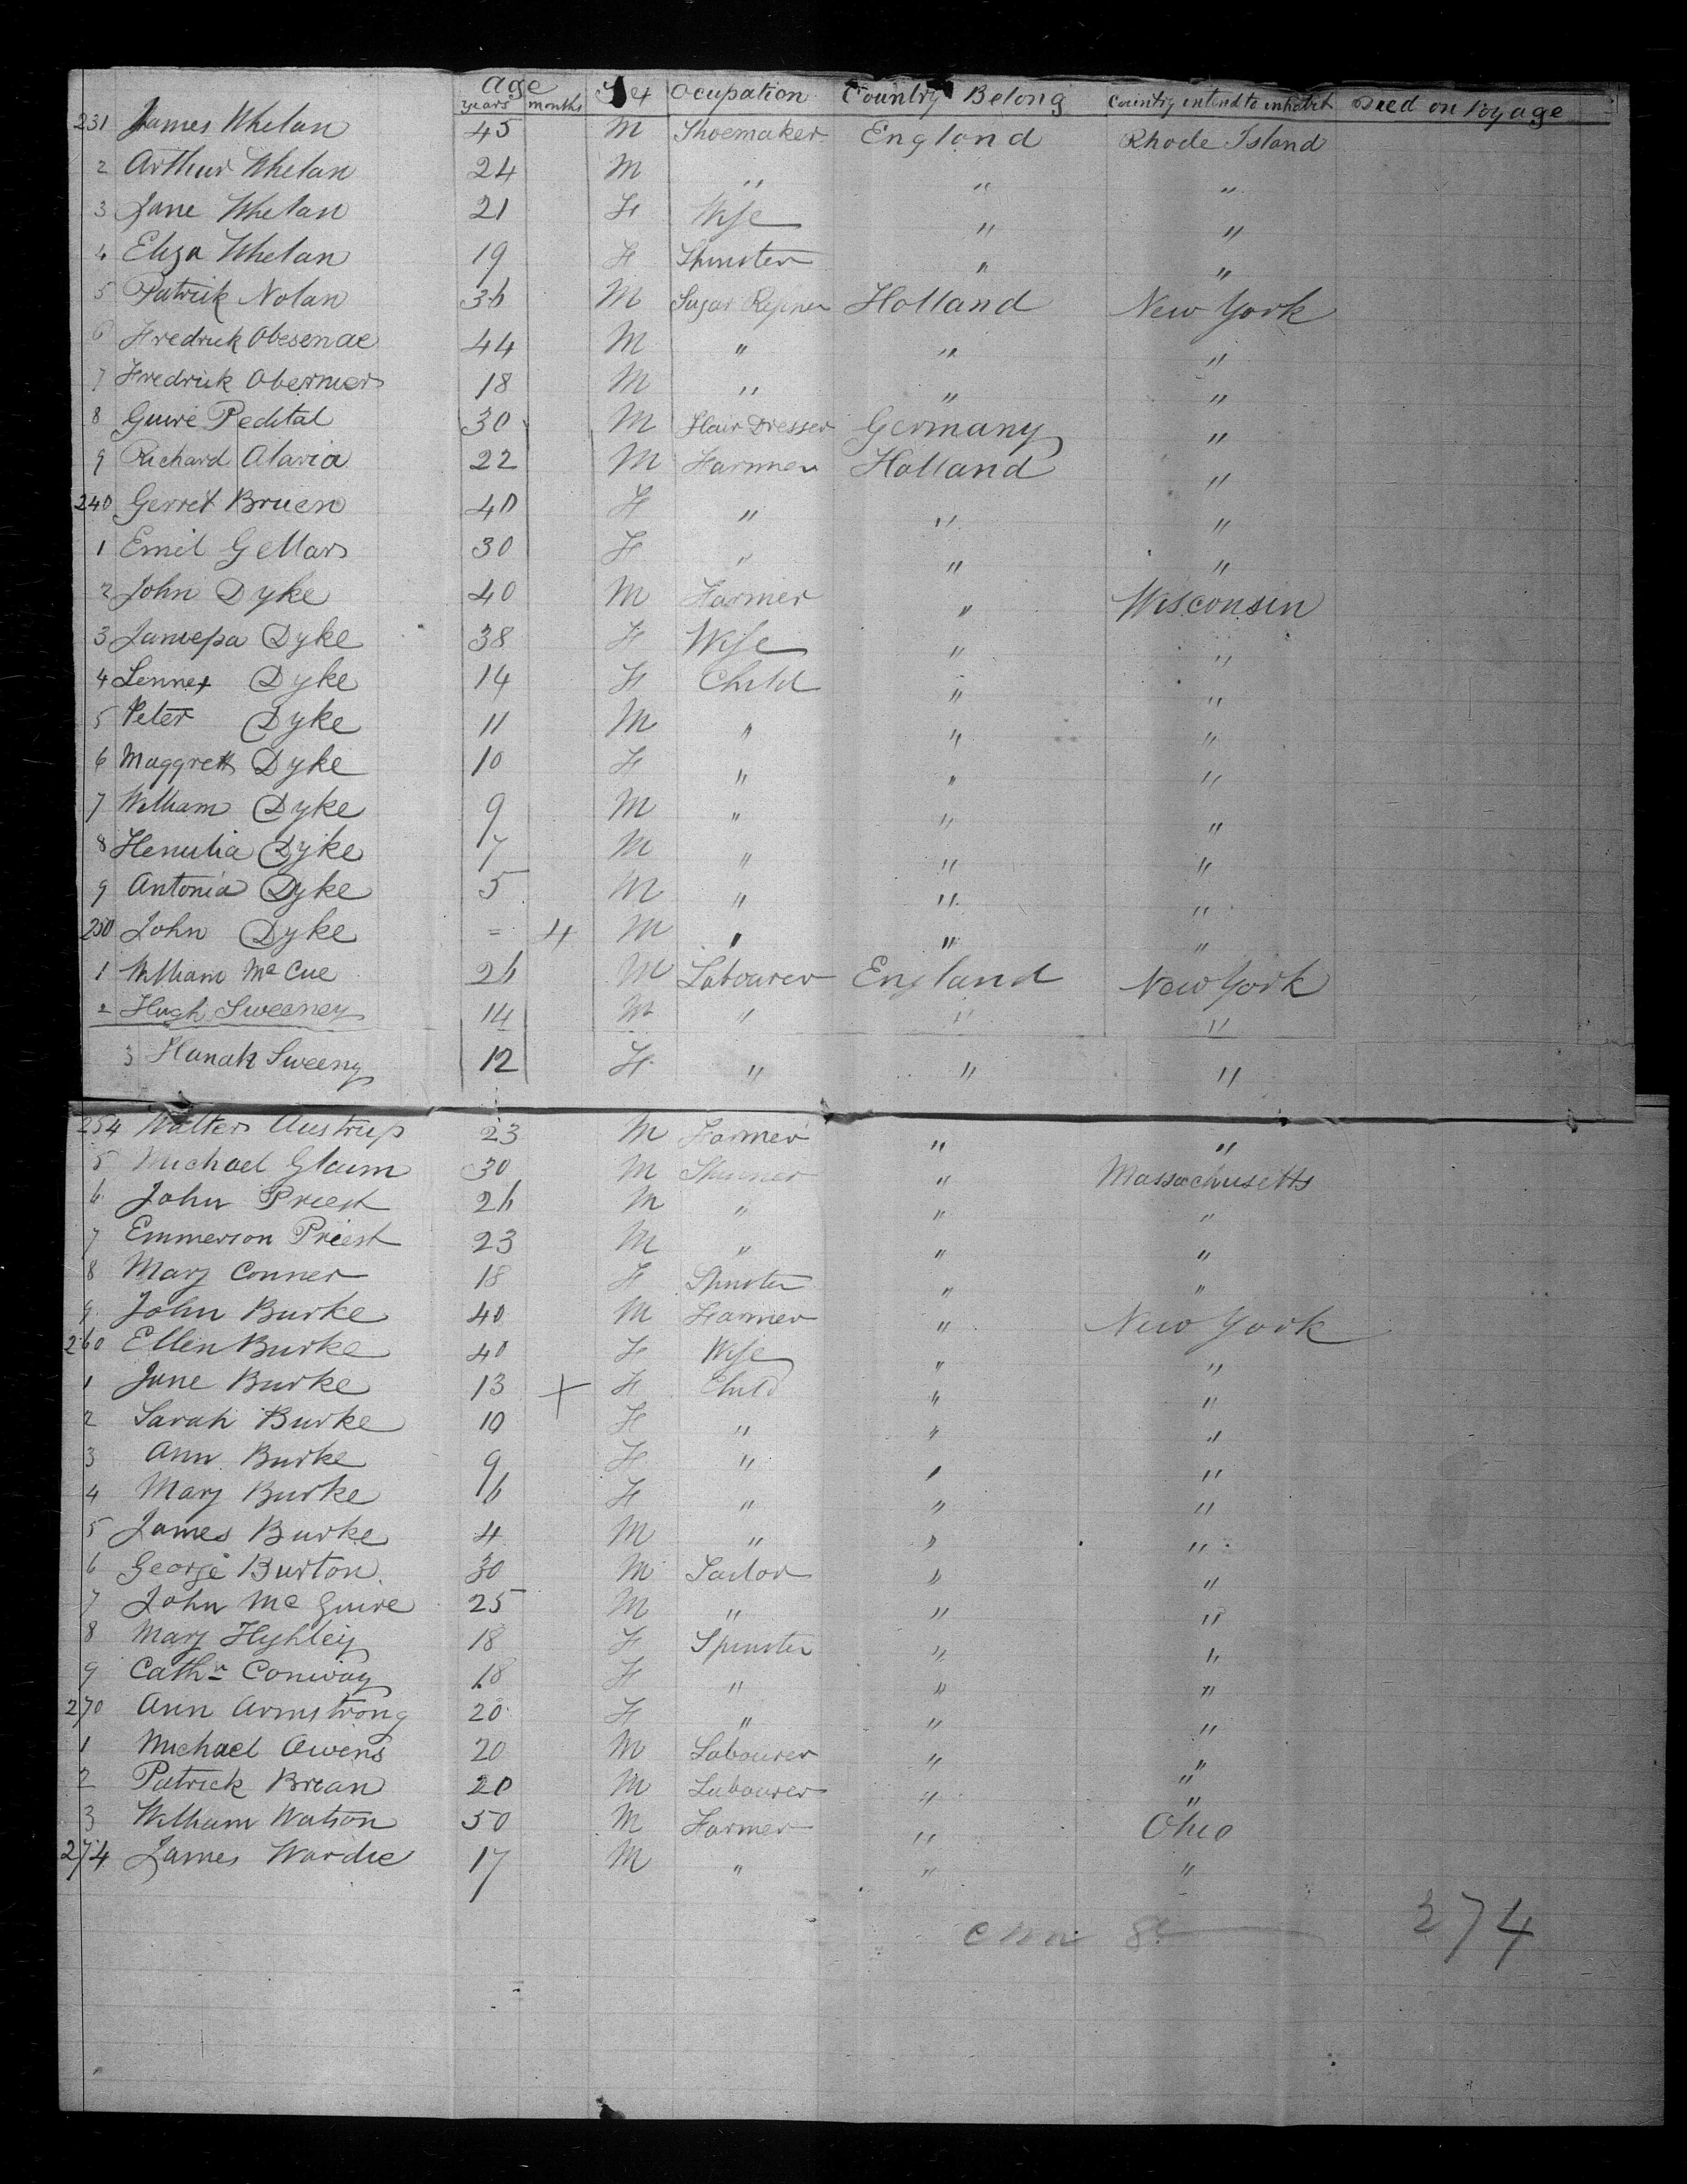 age Sex Ocupation Country Belong Country intend to inhabit Died on Voyage
years months
231 James Whelan 45 M Shoemaker England Rhode Island
2 Arthur Whelan 24 M " " "
3 Jane Whelan 21 F Wife " "
4 Eliza Whelan 19 F Spinster " "
5 Patrick Nolan 36 M Sugar Refiner Holland New York
6 Fredrick 44 M " " "
7 Fredrick Obermers 18 M " " "
8 30 M Hair Dresser Germany "
9 Richard Alaria 22 M Farmer Holland "
240 Gerret Bruen 40 F " " "
1 Emil Gellars 30 F " " "
2 John Dyke 40 M Farmer " Wisconsin
3 Dyke 38 F Wife " "
4 Dyke 14 F Child " "
5 Peter Dyke 11 M " " "
6 Maggrett Dyke 10 F " " "
7 William Dyke 9 M " " "
8 Dyke 7 M " " "
9 Antonia Dyke 5 M " " "
250 John Dyke = 4 M " " "
1 William Mc Cue 26 M Labourer England New York
2 Hugh Sweeney 14 M " " "
3 Hanah Sweeny 12 F " " "
254 Walter Austrup 23 M Farmer " "
5 Michael Glaum 30 M " Massachusetts
6 John Priest 26 M " " "
7 Emmerson Priest 23 M " " "
8 Mary Conner 18 F Spinster " "
9 John Burke 40 M Farmer " New York
260 Ellen Burke 40 F Wife " "
1 Jane Burke 13 + F Child " "
2 Sarah Burke 10 F " " "
3 Ann Burke 9 F " " "
4 Mary Burke 6 F " " "
5 James Burke 4 M " " "
6 George Burton 30 M Tailor " "
7 John Mc Guire 25 M " " "
8 Mary Hyhley 18 F Spinster " "
9 Cathn Conway 18 F " " "
270 Ann Armstrong 20 F " " "
1 Michael Owens 20 M Labourer " "
2 Patrick Brean 20 M Labourer " "
3 William Watson 50 M Farmer " Ohio
274 James Wardle 17 M " " "
274